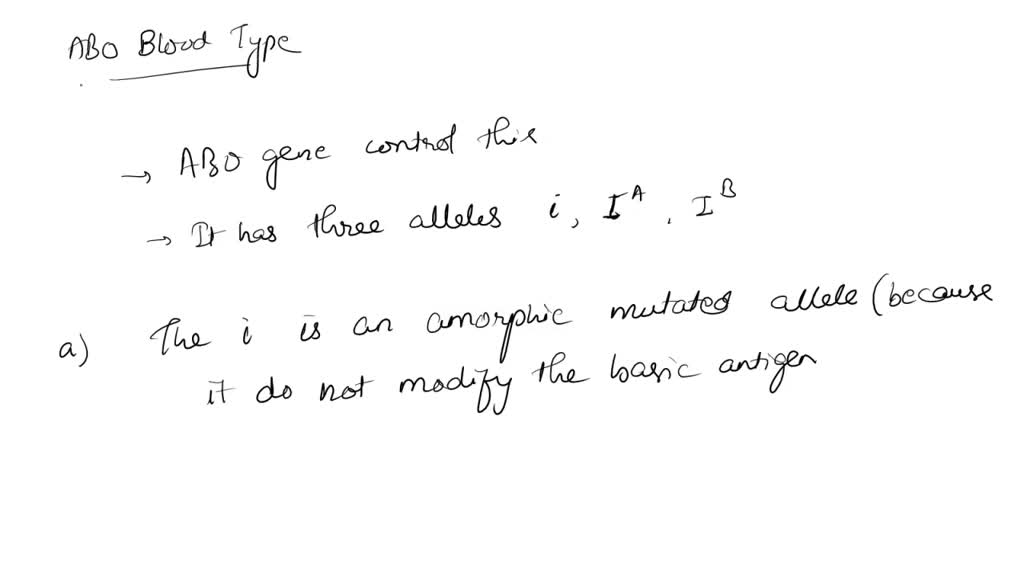 ABO Blood Type
→ ABO gene control this
→ It has three alleles i, I^A, I^B
a) The i is an amorphic mutated allele (because
it do not modify the basic antigen